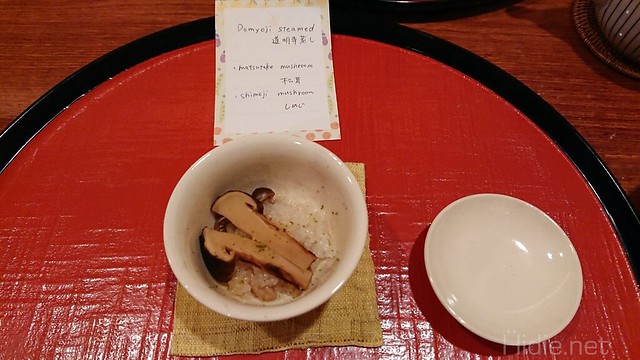 Domyoji steamed
道明寺蒸し
・matsutake mushroom
松茸
・shimeji mushroom
しめじ
Hidle.net